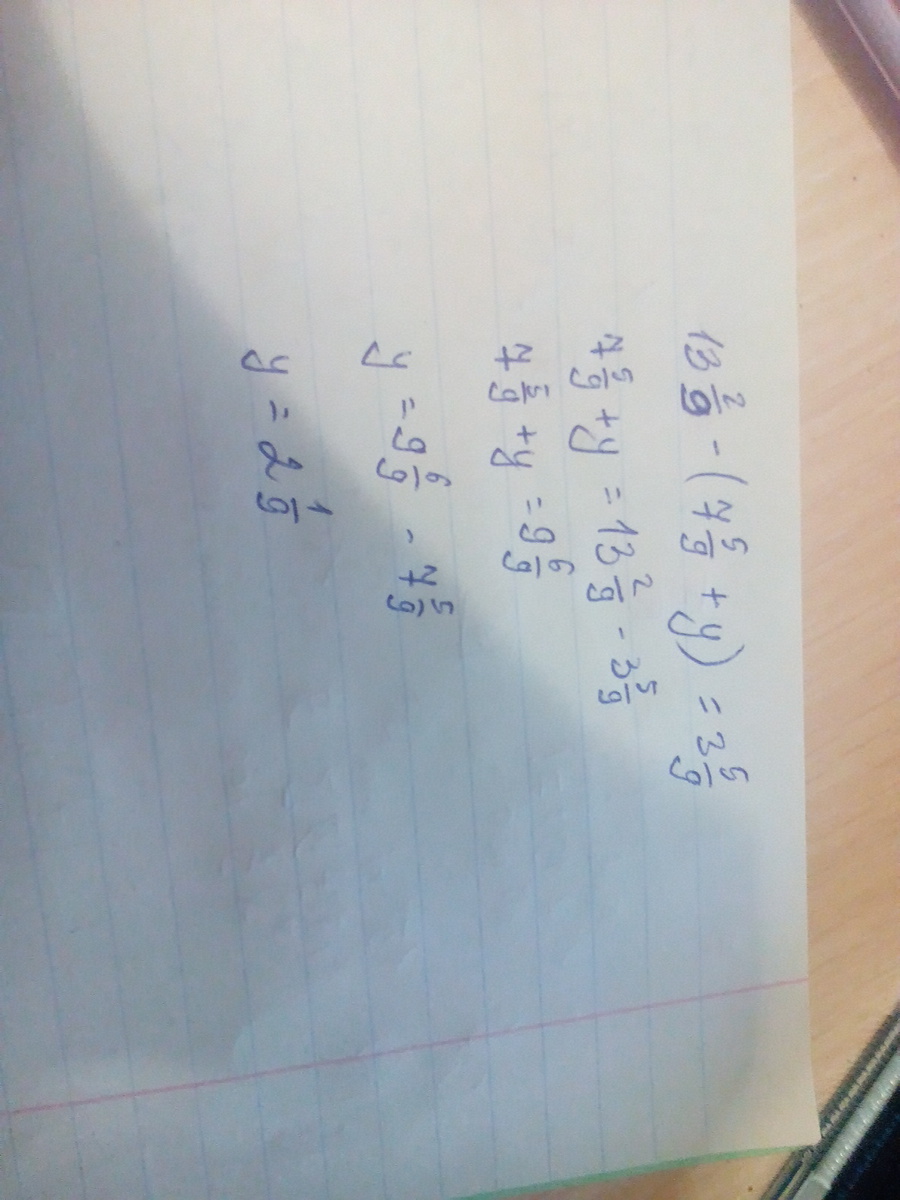 13 2/9 - (7 5/9 + y) = 3 5/9
7 5/9 + y = 13 2/9 - 3 5/9
7 5/9 + y = 9 6/9
y = 9 6/9 - 7 5/9
y = 2 1/9